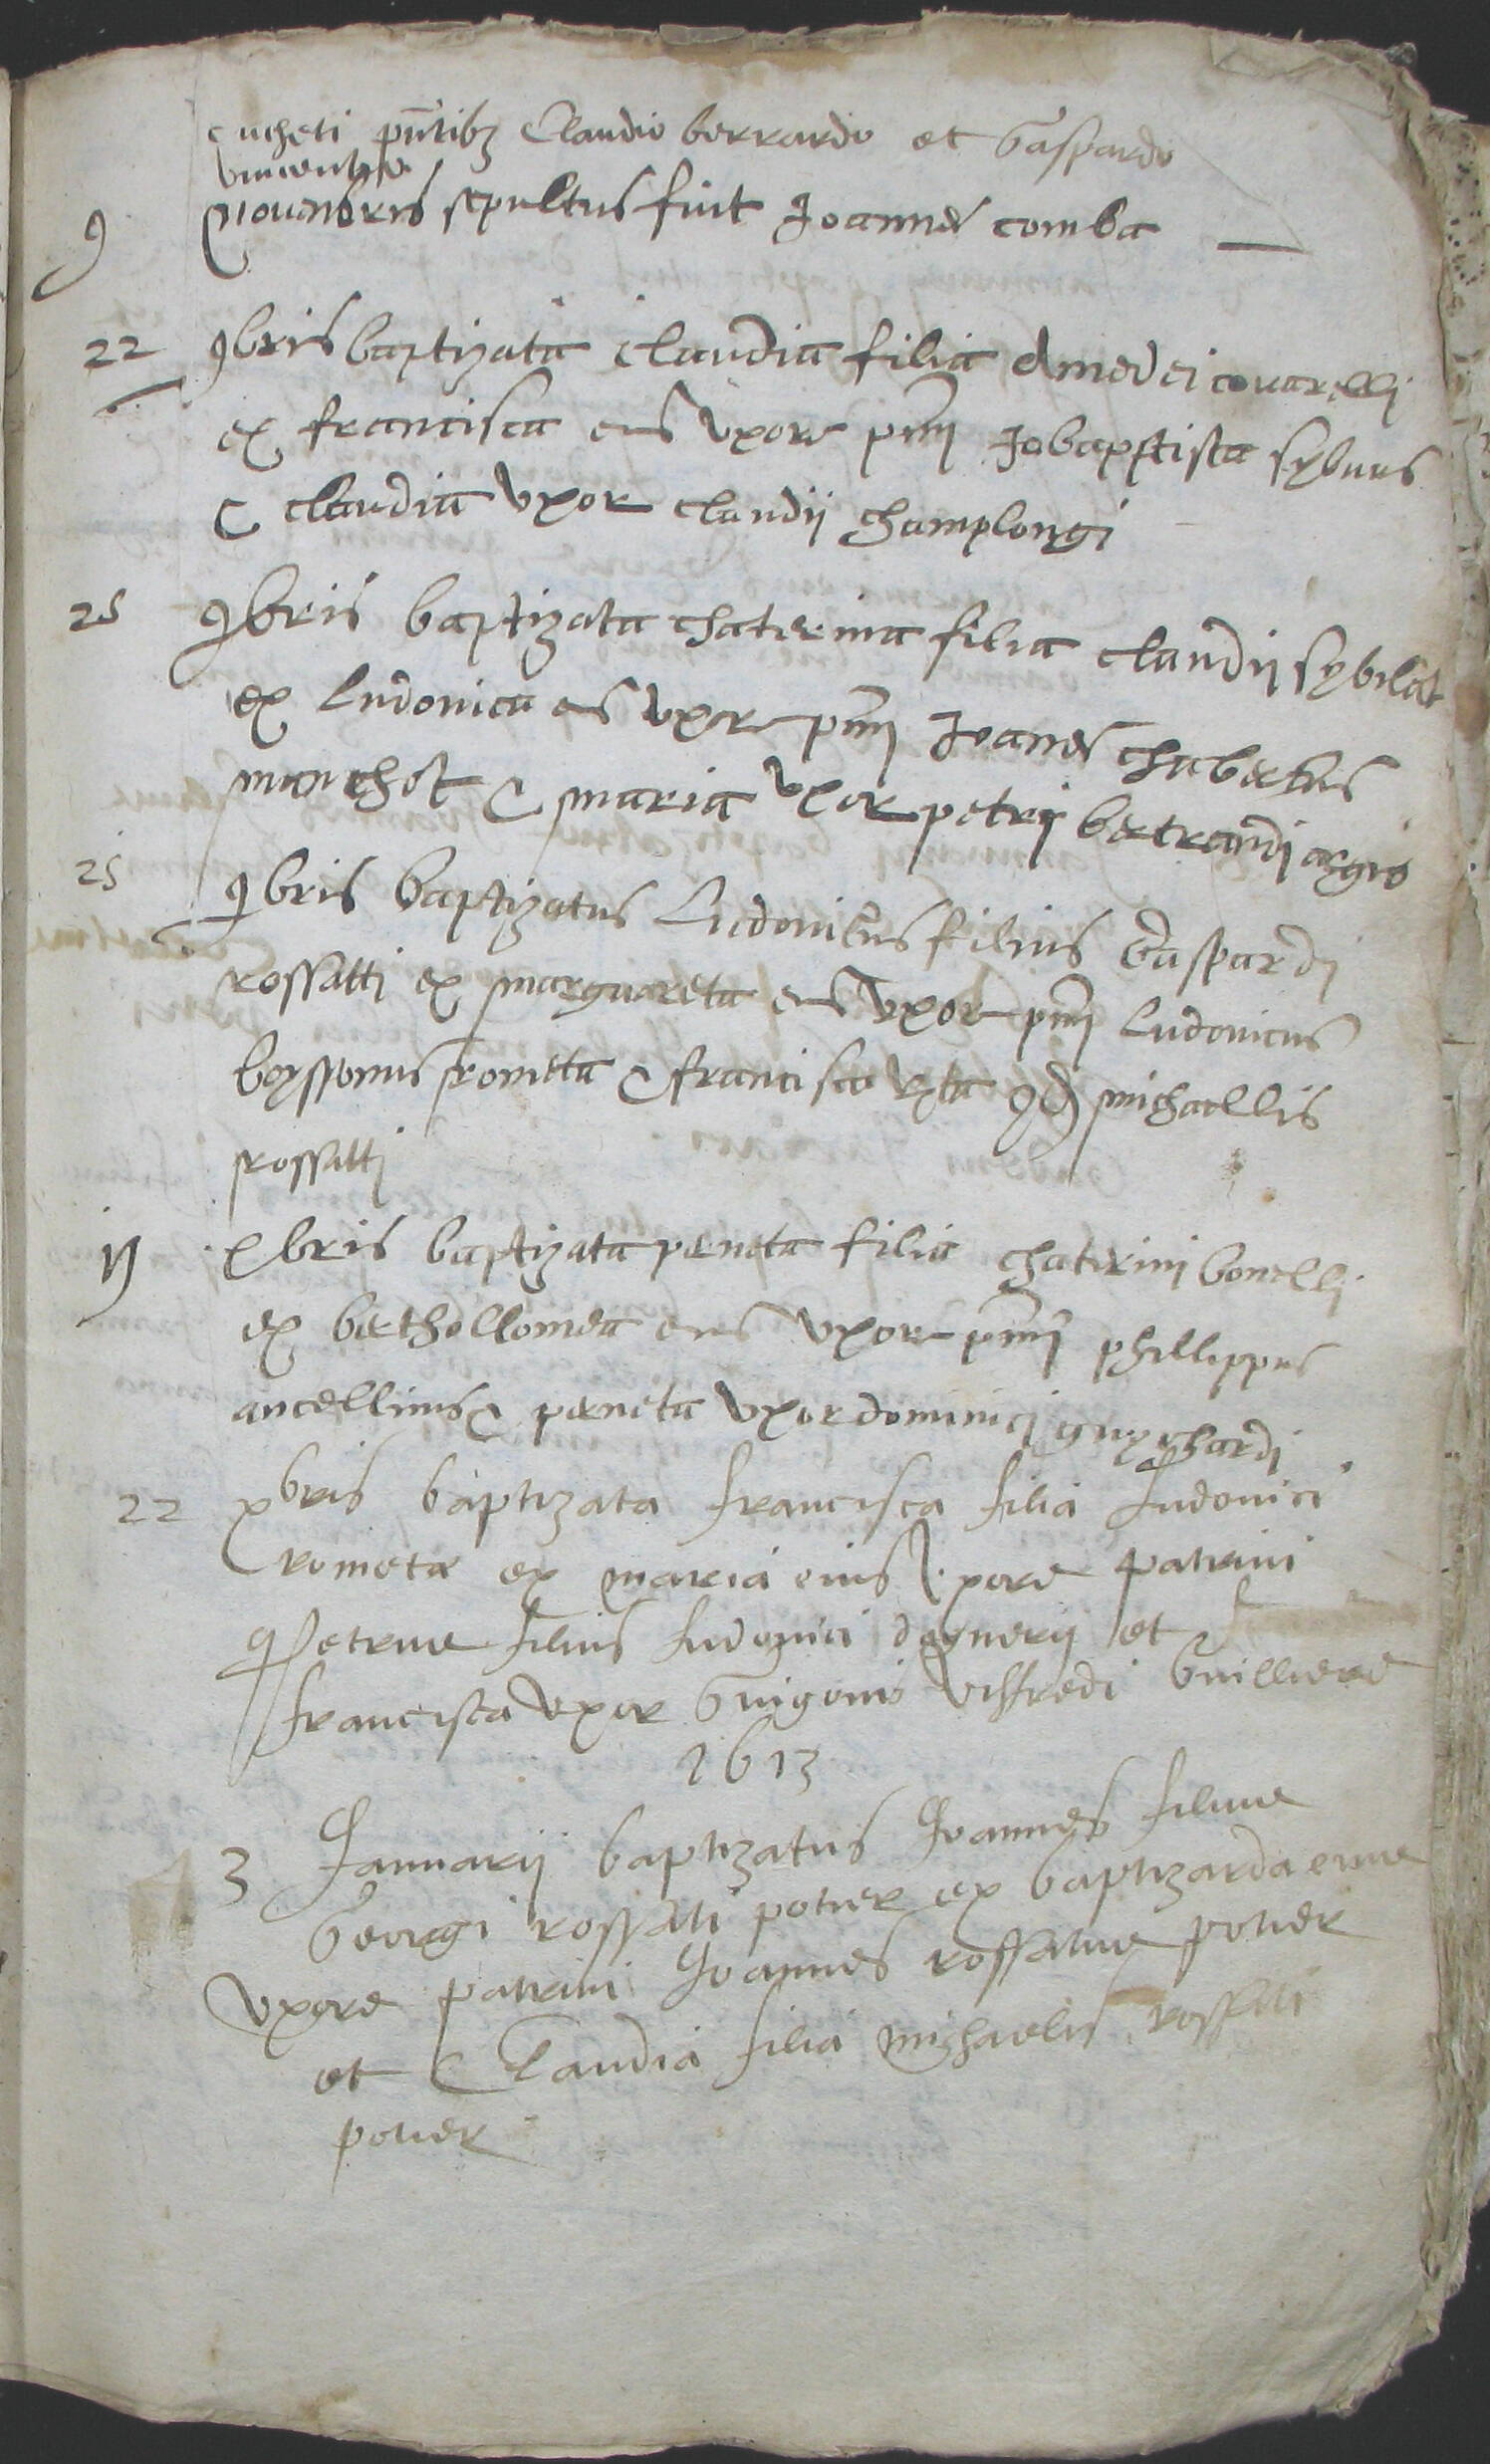 cucheti pntibz Claudio berrardo et Gaspardo
vincentio
9 Nouembris sepultus fuit Joannes comba
22 9bris baptizata claudia filia Amedei couarelli
ex francisca eius vxore pnii Jobaptista sybuus
& claudia vxor claudij champlongi
25 9bris baptizata chaterina filia claudij sybilat
ex ludouica eius vxore pnii Joanes chabertus
manchot & maria vxor petri bertrandi argio
25 9bris baptizatus Ludouicus filius Gaspardi
rossatti ex marguareta eius vxor pnii ludouicus
boyssonus rometa & francisca rta qd michaellis
rossatti
13 Xbris baptizata perneta filia chaterini bonelli
ex berthollomea eius vxore pnii phillippus
ancellinus & perneta vxor dominici guychardi
22 xbris baptizata francisca filia Ludouici
rometa ex maria eius vxore patrini
petrus filius ludouici dagnerij et
francisca vxor Guigonis viffredi Guilliere
1613
3 Januarij baptizatus Joannes filius
Georgi rossati potier ex baptizarda eius
vxore patrini Joannes rossatus potier
et Claudia filia michaelis rossati
potier